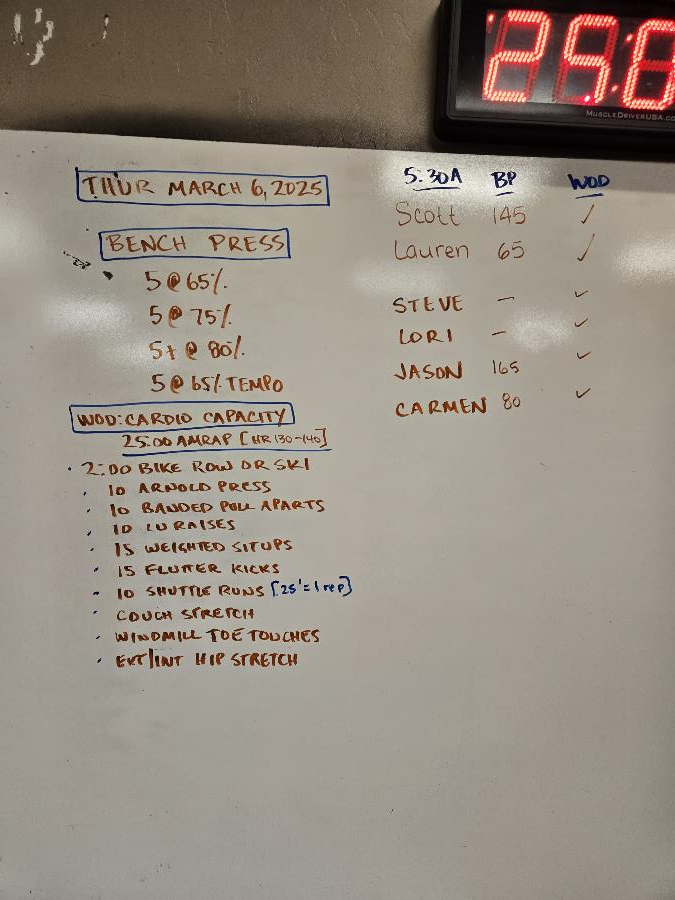 25:0
MUSCLEDRIVERUSA.CO
THUR MARCH 6, 2025
BENCH PRESS
5 @ 65%
5 @ 75%
5+ @ 80%
5 @ 65% TEMPO
WOD: CARDIO CAPACITY
25:00 AMRAP [HR 130-140]
• 2:00 BIKE ROW OR SKI
• 10 ARNOLD PRESS
• 10 BANDED PULL APARTS
• 10 LU RAISES
• 15 WEIGHTED SITUPS
• 15 FLUTTER KICKS
• 10 SHUTTLE RUNS [25' = 1 rep]
• COUCH STRETCH
• WINDMILL TOE TOUCHES
• EXT/INT HIP STRETCH
5:30A BP WOD
Scott 145 ✓
Lauren 65 ✓
STEVE — ✓
LORI — ✓
JASON 165 ✓
CARMEN 80 ✓